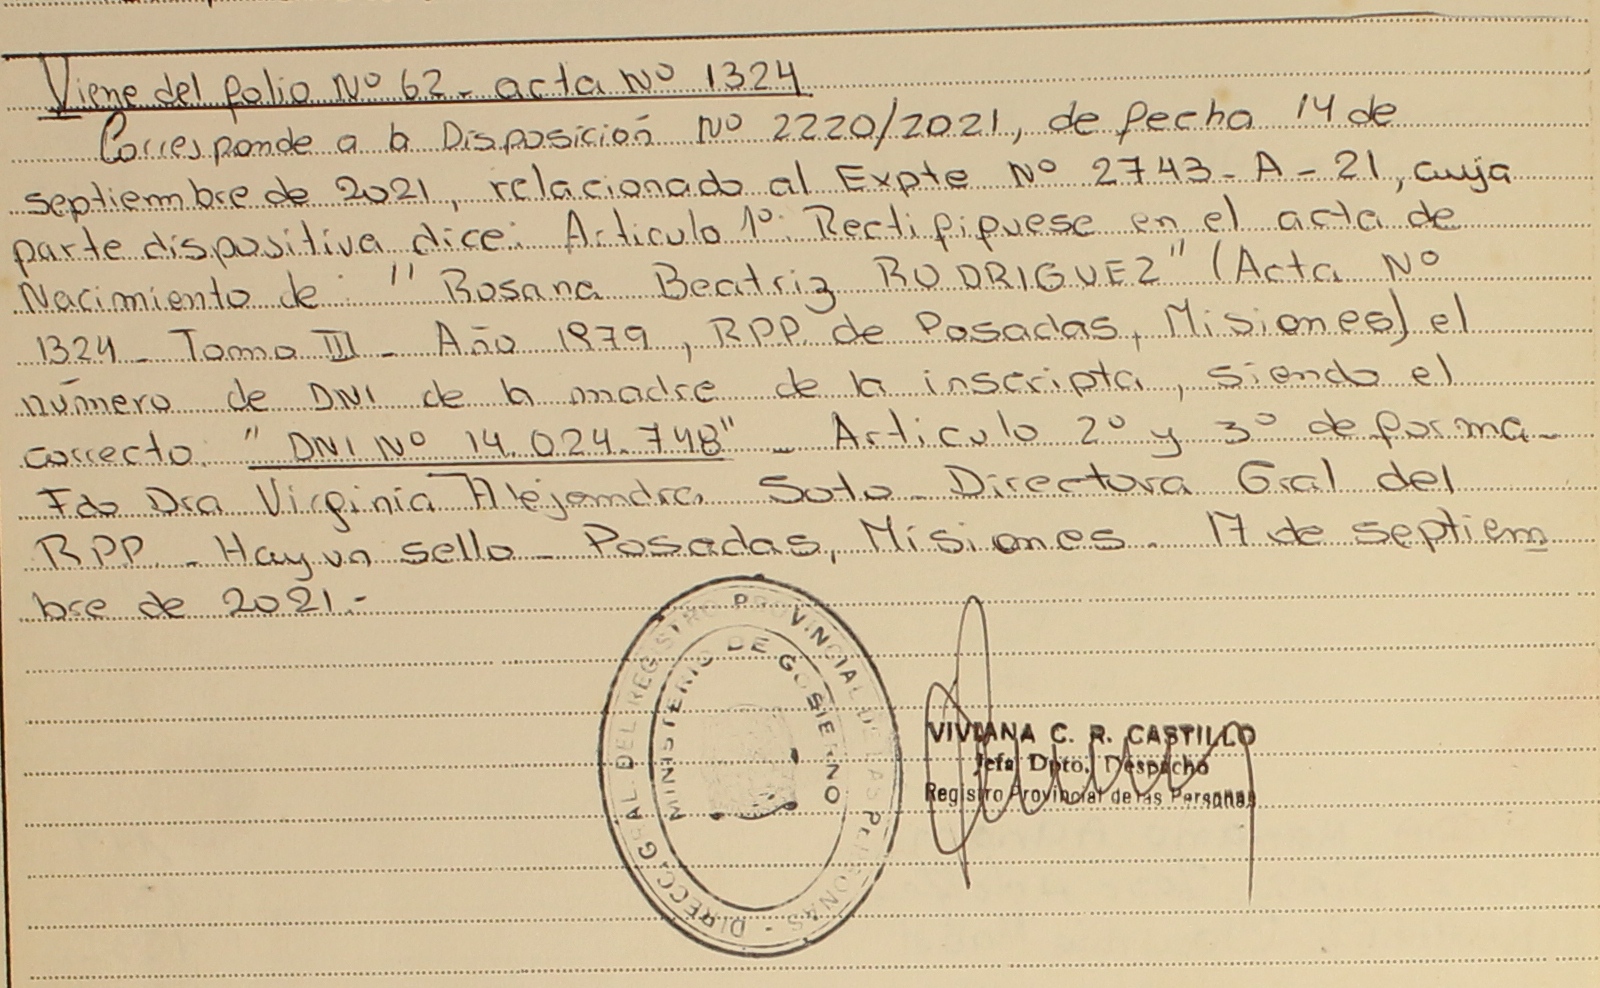 Viene del folio Nº 62 - acta Nº 1324
Corresponde a la Disposición Nº 2220/2021, de fecha 14 de
septiembre de 2021, relacionado al Expte Nº 2743 - A - 21, cuya
parte dispositiva dice: Articulo 1º: Rectifiquese en el acta de
Nacimiento de: "Rosana Beatriz RODRIGUEZ" (Acta Nº
1324 - Tomo III - Año 1979, RPP. de Posadas, Misiones) el
número de DNI de la madre de la inscripta, siendo el
correcto: "DNI Nº 14.024.748" - Articulo 2º y 3º de forma -
Fdo Dra Virginia Alejandra Soto - Directora Gral del
RPP. - Hay un sello - Posadas, Misiones. 17 de septiem
bre de 2021.-
DIRECC. GRAL. DEL REGISTRO PROVINCIAL DE LAS PERSONAS -
MINISTERIO DE GOBIERNO
VIVIANA C. R. CASTILLO
Jefa Dpto. Despacho
Registro Provincial de las Personas